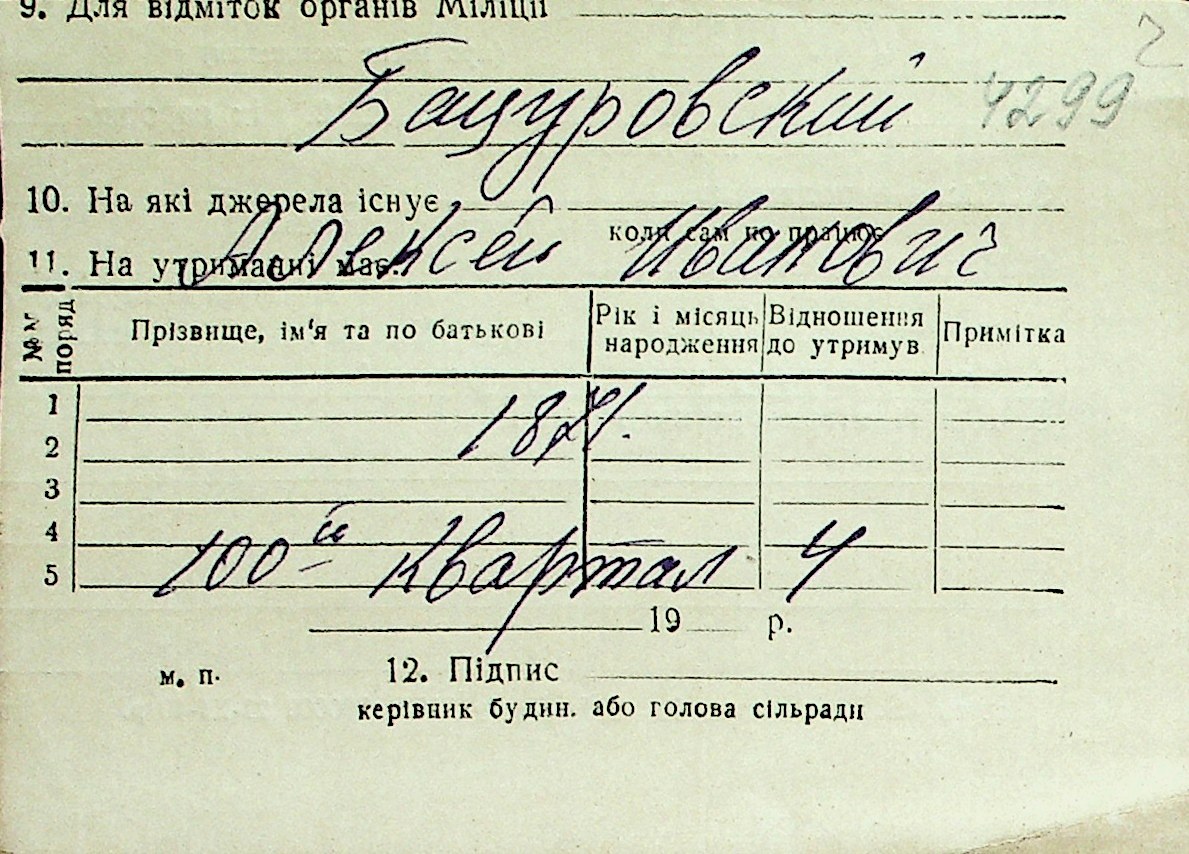 9. Для відміток органів Міліції
Бацуровский 4299
10. На які джерела існує
коли сам не працює
Алексей Иванович
11. На утриманні має
№№ поряд
Прізвище, ім'я та по батькові
Рік і місяць народження
Відношення до утримув.
Примітка
1
1871.
2
3
4
100й квартал 4
5
19 р.
м. п. 12. Підпис
керівник будин. або голова сільради